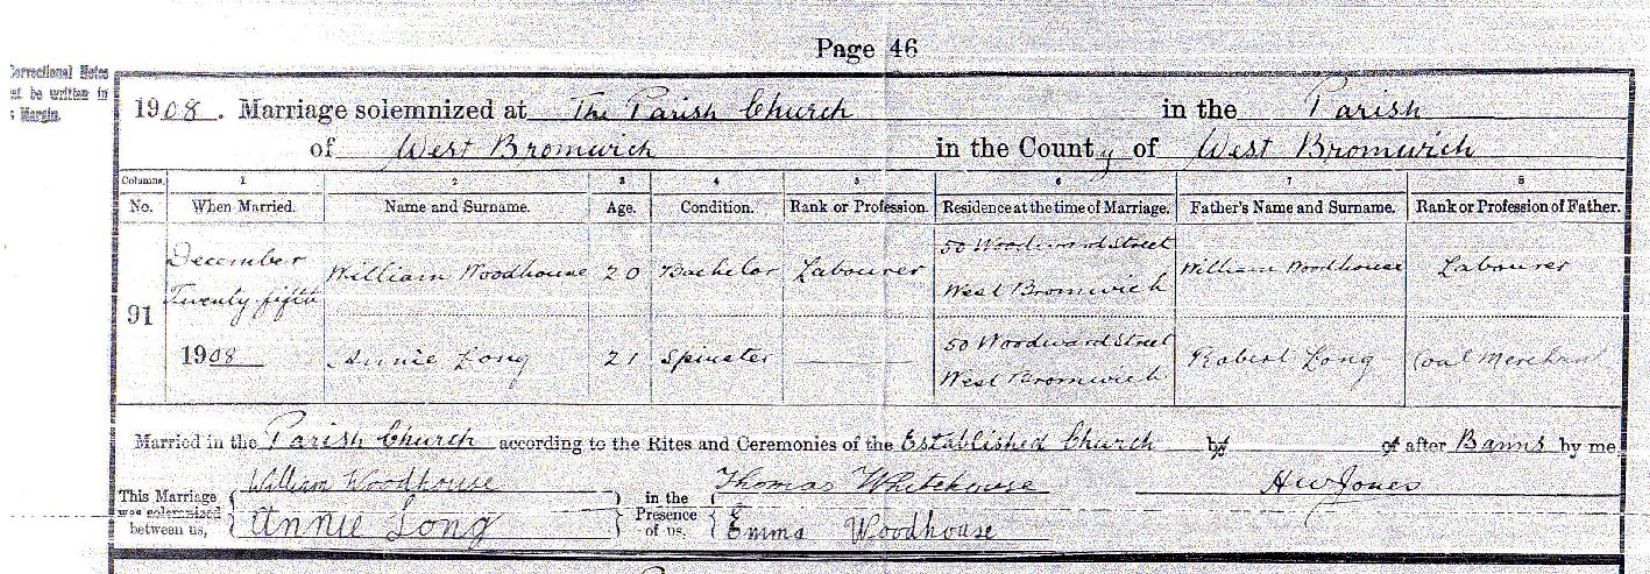 Page 46
Correctional Notes
be written in
Margin.
1908. Marriage solemnized at The Parish Church in the Parish
of West Bromwich in the County of West Bromwich
Columns. 1 2 3 4 5 6 7 8
No. When Married. Name and Surname. Age. Condition. Rank or Profession. Residence at the time of Marriage. Father's Name and Surname. Rank or Profession of Father.
91
December Twenty fifth 1908
William Woodhouse 20 Bachelor Labourer 50 Woodward Street West Bromwich William Woodhouse Labourer
Annie Long 21 Spinster 50 Woodward Street West Bromwich Robert Long Coal Merchant
Married in the Parish Church according to the Rites and Ceremonies of the Established Church by or after Banns by me,
This Marriage was solemnized between us, William Woodhouse Annie Long in the Presence of us, Thomas Whitehouse Emma Woodhouse H W Jones